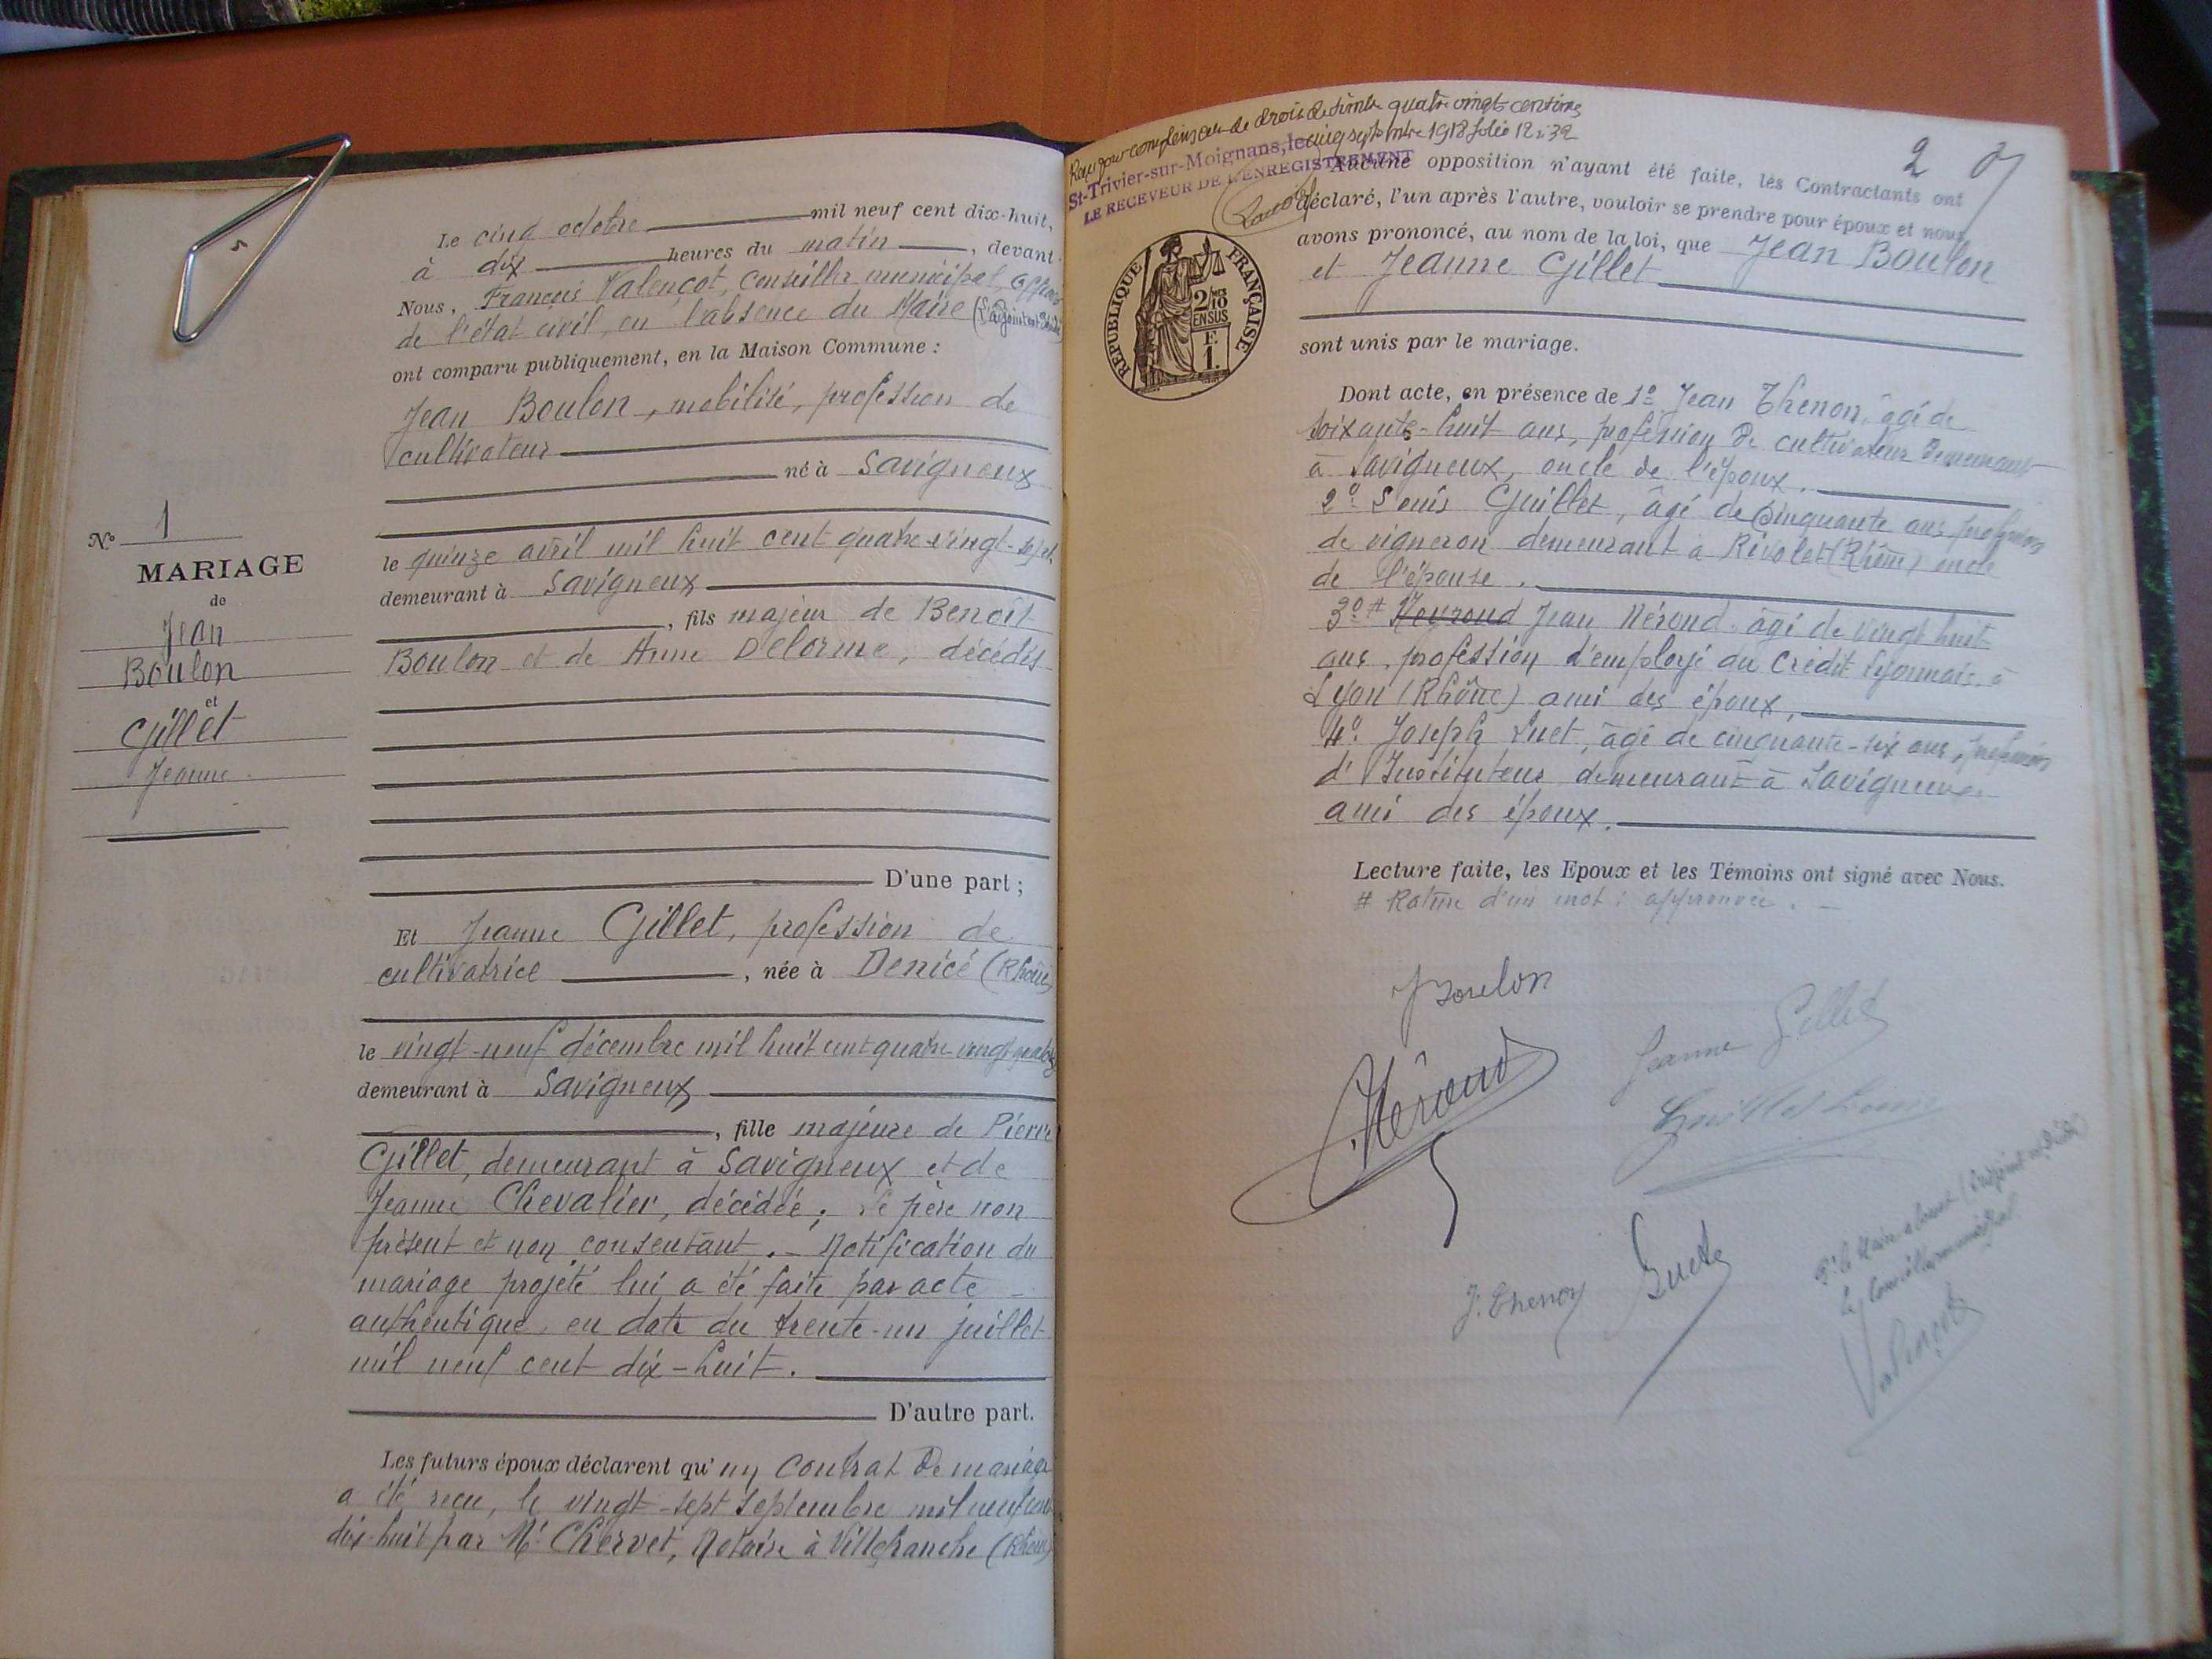 Le cinq octobre mil neuf cent dix-huit,
à dix heures du matin, devant
Nous, François Valençot, conseiller municipal, officier
de l'état civil, en l'absence du Maire (
ont comparu publiquement, en la Maison Commune :
Jean Boulon, mobilisé, profession de
cultivateur
né à Savigneux
le quinze avril mil huit cent quatre-vingt-sept
demeurant à Savigneux
, fils majeur de Benoît
Boulon et de Anne Delorme, décédés
D'une part ;
Et Jeanne Gillet, profession de
cultivatrice, née à Denicé (Rhône)
le vingt-neuf décembre mil huit cent quatre-vingt
demeurant à Savigneux
, fille majeure de Pierre
Gillet, demeurant à Savigneux et de
Jeanne Chevalier, décédée ; le père non
présent et non consentant. - Notification du
mariage projeté lui a été faite par acte
authentique en date du trente-un juillet
mil neuf cent dix-huit.
D'autre part.
Les futurs époux déclarent qu'un contrat de mariage
a été reçu, le vingt-sept septembre mil neuf cent
dix-huit par Me Chervet, Notaire à Villefranche (Rhône)
No 1
MARIAGE
de
Jean
Boulon
et
Gillet
Jeanne
5
Reçu pour de droit de timbre quatre vingt centimes
St-Trivier-sur-Moignans, le cinq septembre 1918 folio 12
LE RECEVEUR DE L'ENREGISTREMENT
2
Aucune opposition n'ayant été faite, les Contractants ont
déclaré, l'un après l'autre, vouloir se prendre pour époux et nous
avons prononcé, au nom de la loi, que Jean Boulon
et Jeanne Gillet
RÉPUBLIQUE FRANÇAISE
2/10
EN SUS
F.
1.
sont unis par le mariage.
Dont acte, en présence de 1º Jean Thenon, âgé de
soixante-huit ans, profession de cultivateur demeurant
à Savigneux, oncle de l'époux.
2º Louis Guillet, âgé de cinquante ans profession
de vigneron demeurant à Rivolet (Rhône) oncle
de l'épouse.
3º # Jean Mérond âgé de vingt huit
ans, profession d'employé au Crédit Lyonnais à
Lyon (Rhône) ami des époux,
4º Joseph Suet, âgé de cinquante-six ans, profession
d'Instituteur demeurant à Savigneux
ami des époux.
Lecture faite, les Epoux et les Témoins ont signé avec Nous.
# Rature d'un mot : approuvée. -
J Boulon
Jeanne Gillet
J. Thenon
Pr le Maire absent
Le Conseiller municipal
Valençot